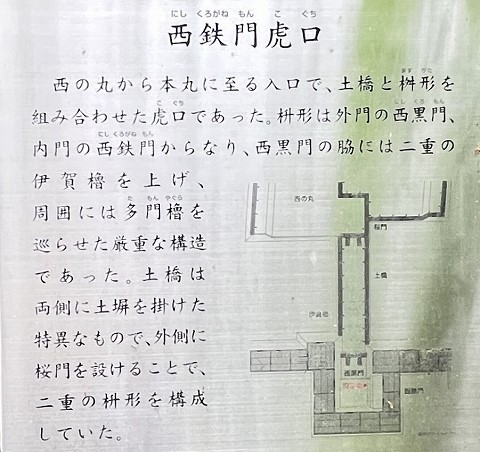 にし くろがね もん こ ぐち
西鉄門虎口
西の丸から本丸に至る入口で、土橋と桝形を
組み合わせた虎口であった。枡形は外門の西黒門、
内門の西鉄門からなり、西黒門の脇には二重の
伊賀櫓を上げ、
周囲には多門櫓を
巡らせた厳重な構造
であった。土橋は
両側に土塀を掛けた
特異なもので、外側に
桜門を設けることで、
二重の枡形を構成
していた。
西の丸
桜門
土橋
伊賀櫓
西黒門
西鉄門